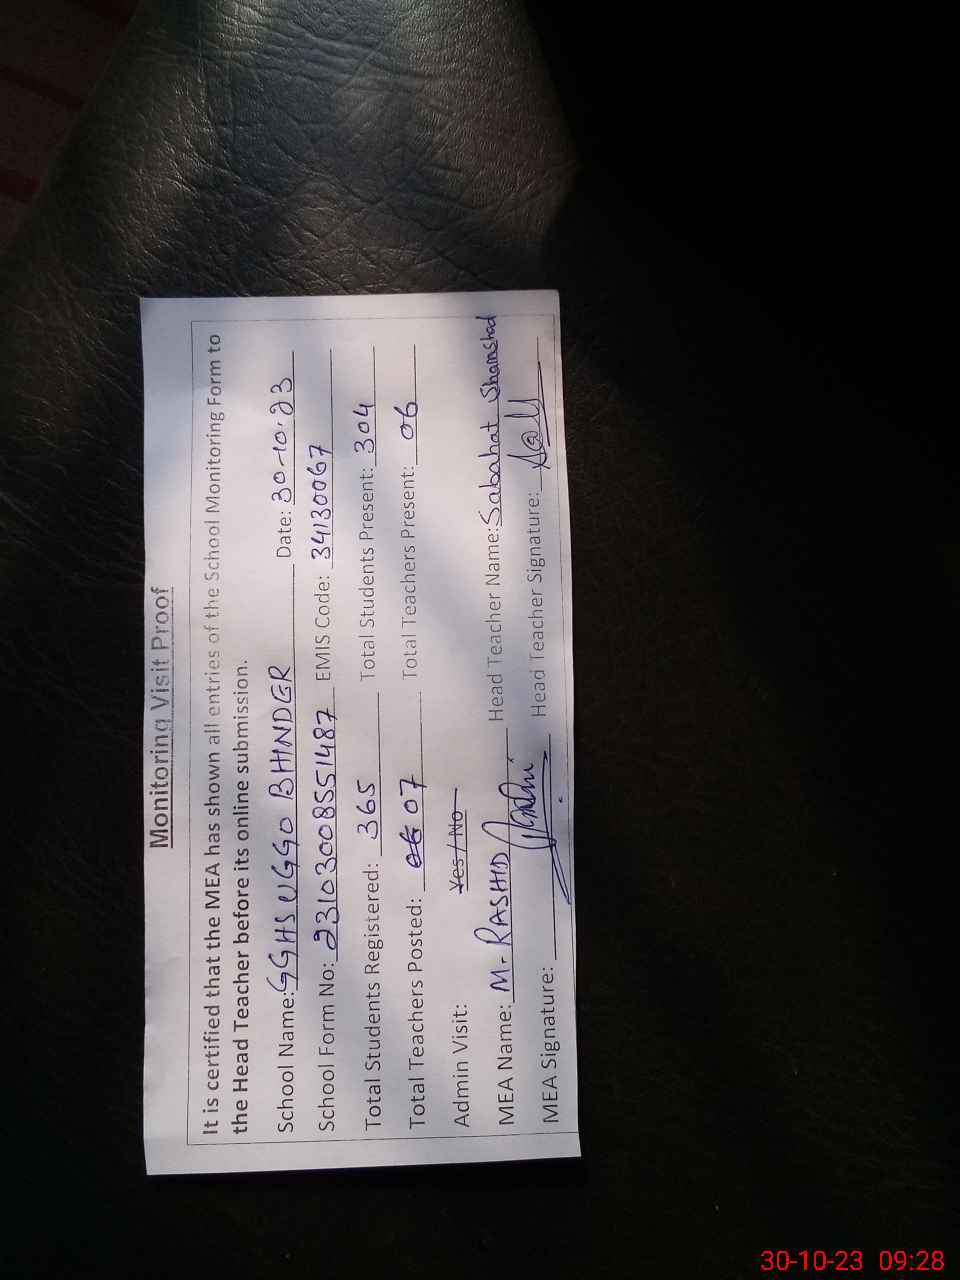 Monitoring Visit Proof
It is certified that the MEA has shown all entries of the School Monitoring Form to
the Head Teacher before its online submission.
School Name: GGHS UGGO BHINDER Date: 30-10-23
School Form No: 23103008551487 EMIS Code: 34130067
Total Students Registered: 365 Total Students Present: 304
Total Teachers Posted: 06 07 Total Teachers Present: 06
Admin Visit: Yes / No
MEA Name: M. RASHID Head Teacher Name: Sabahat Shamshad
MEA Signature: Head Teacher Signature:
30-10-23 09:28